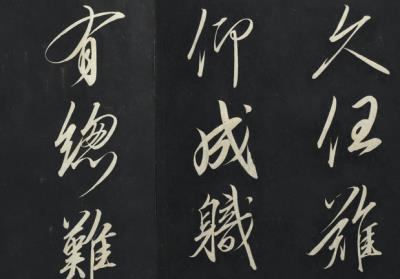 久任難
仰成軄
有總難